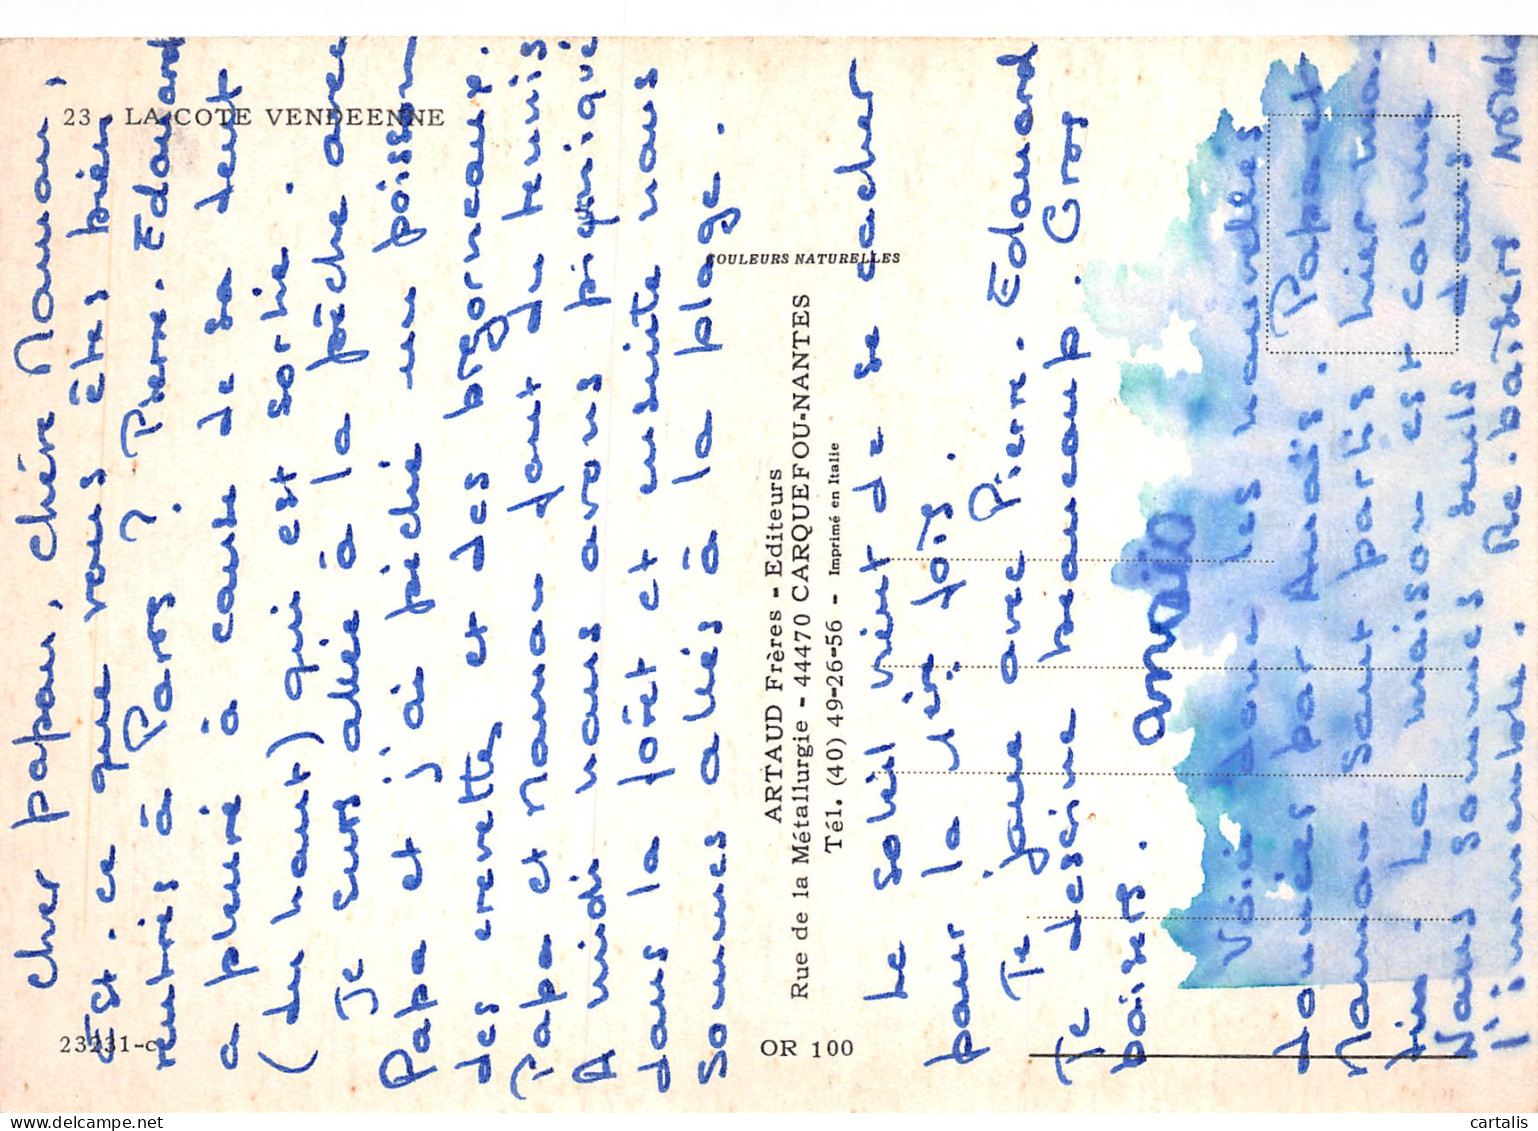 23 - LA COTE VENDEENNE
23231-c
COULEURS NATURELLES
ARTAUD Frères - Editeurs
Rue de la Métallurgie - 44470 CARQUEFOU-NANTES
Tél. (40) 49-26-56 - Imprimé en Italie
OR 100
Cher papou, chère Mamou,
Est-ce que vous êtes bien
rentrés à Paris ? Pierre. Edouard
a pleuré à cause de sa dent
(du haut) qui est sortie.
Je suis allée à la pêche avec
Papa et j'ai pêché un poisson
des crevettes et des bigorneaux.
Papa et Maman font du tennis
A midi nous avons piqniqué
dans la forêt et ensuite nous
sommes allés à la plage.
Le soleil vient de se cacher
pour la 1ère fois.
Je joue avec Pierre. Edouard
Je dessine beaucoup. Gros
baisers.
Voici donc les nouvelles
données par Anaïs. Papa et
Maman sont partis hier ma-
tin. La maison est calme -
Nous sommes seuls dans
l'immeuble. Bons baisers
cartalis